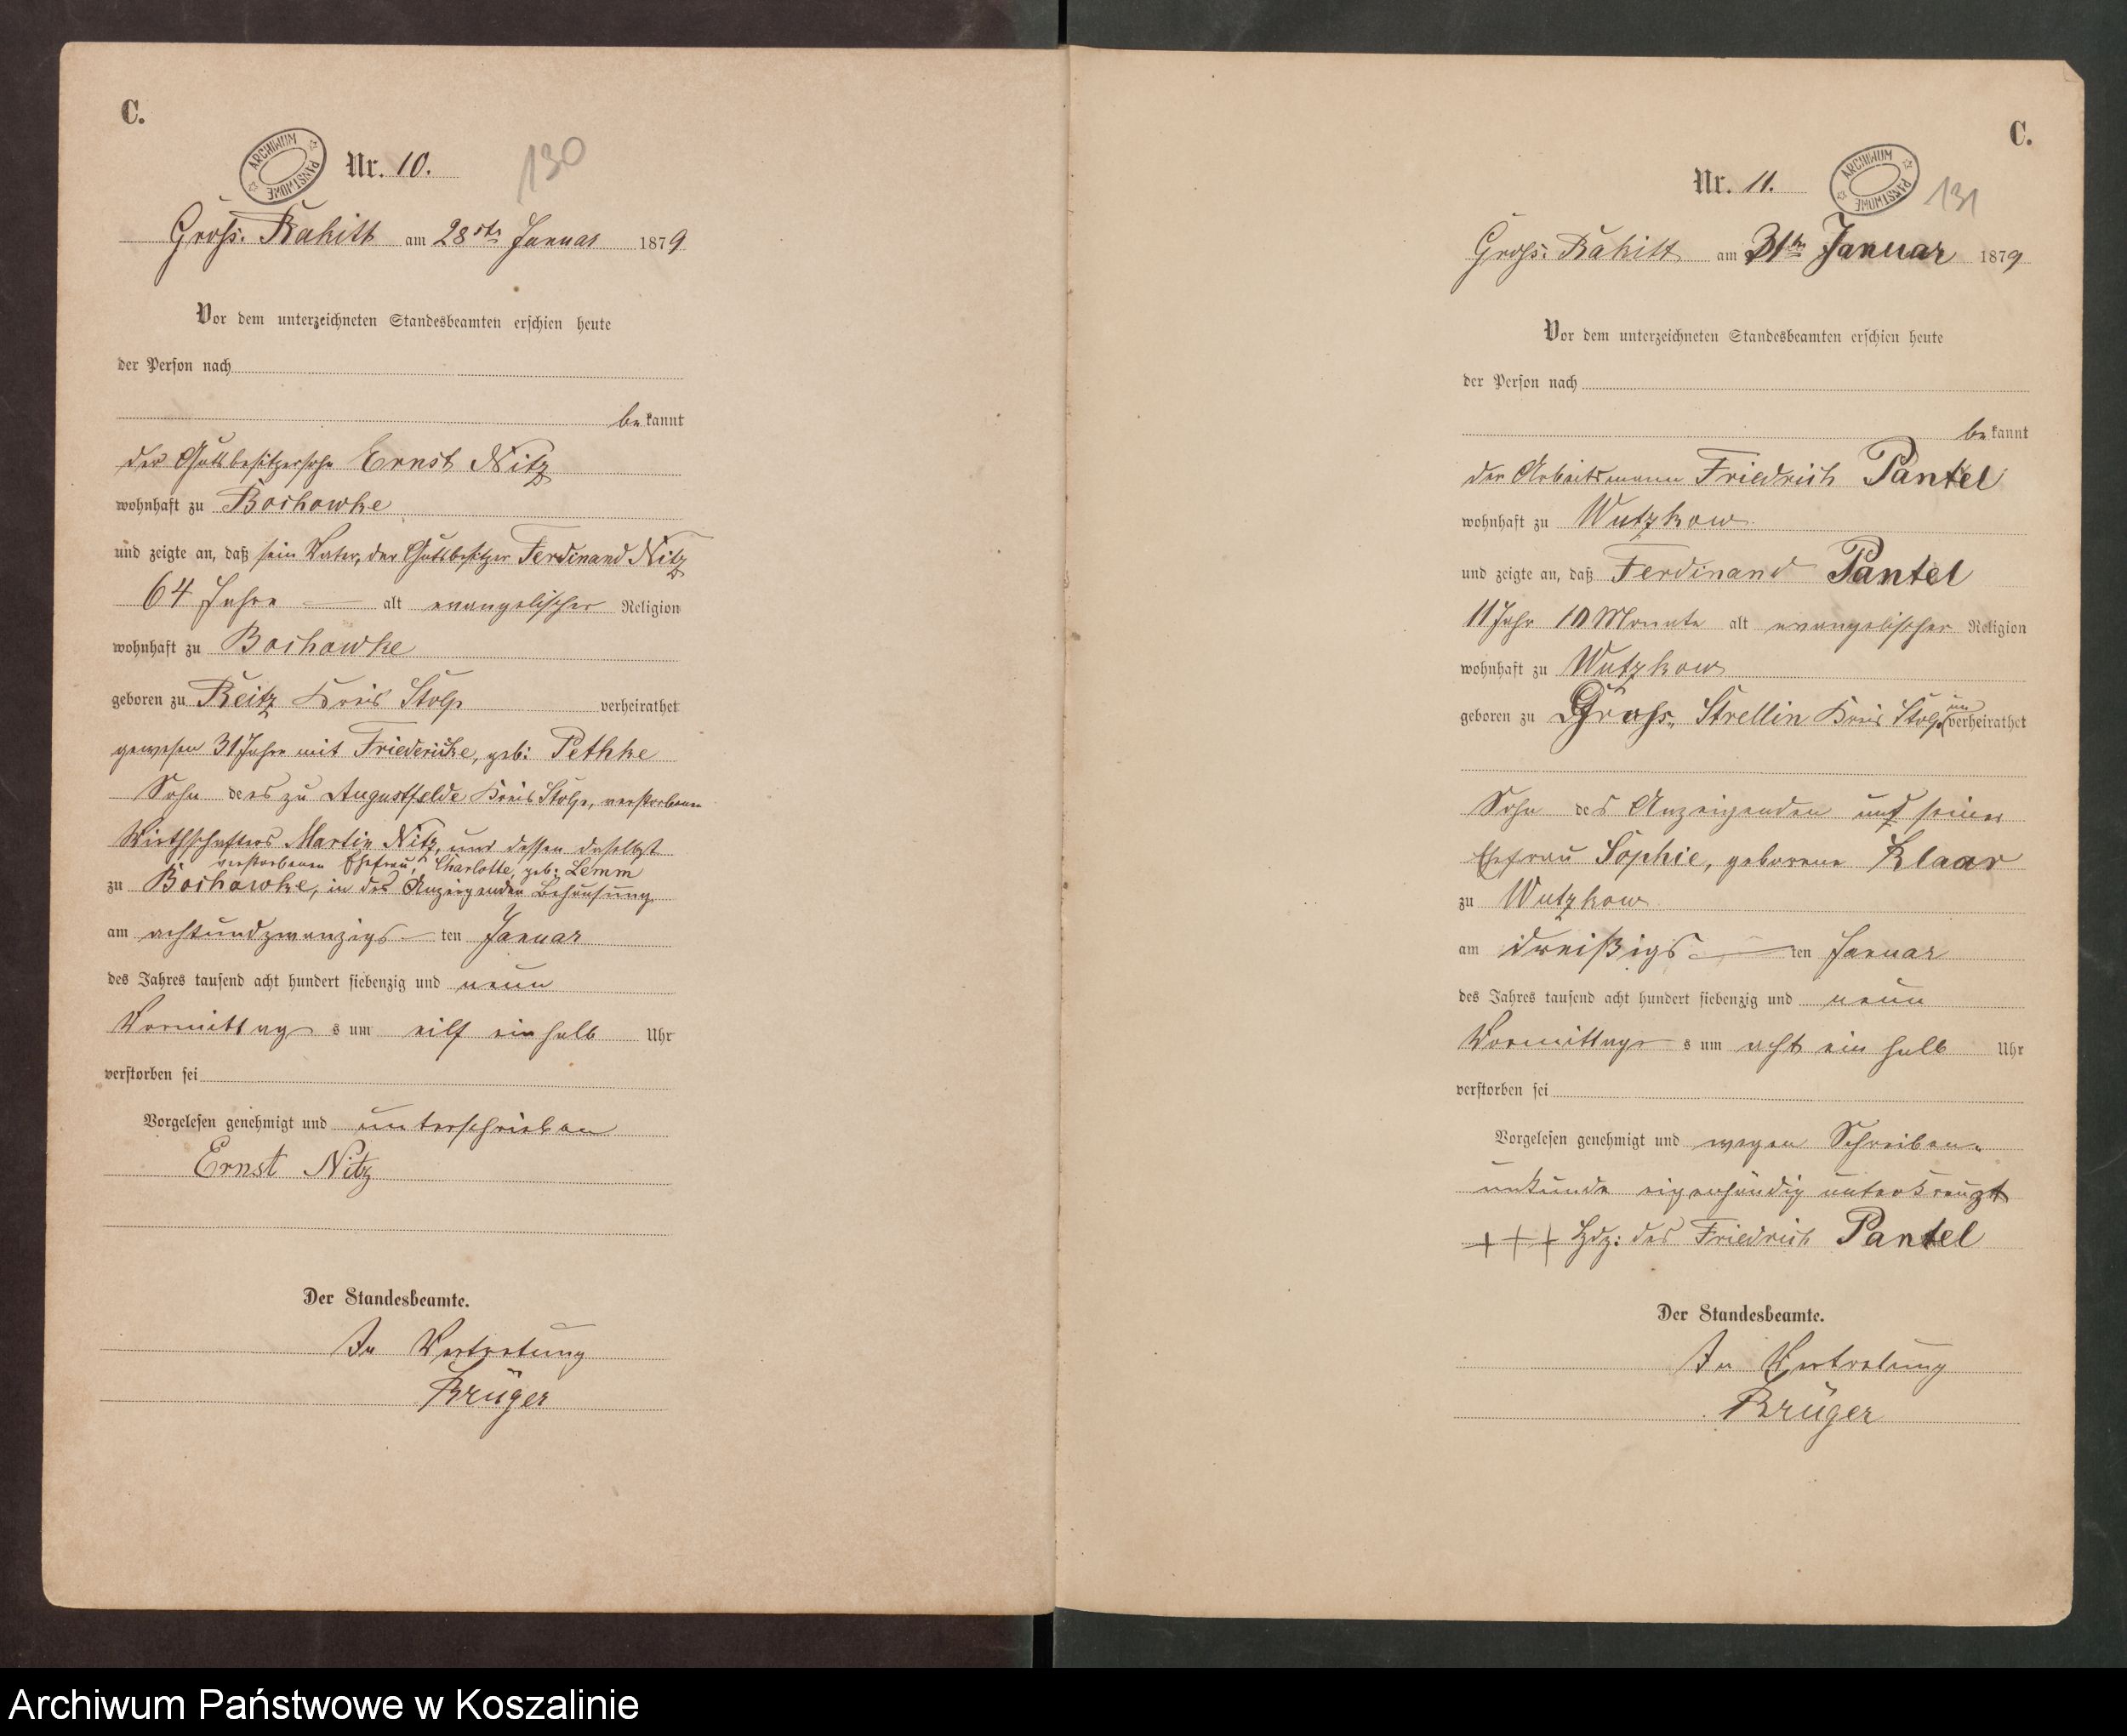 C.
ARCHIWUM PAŃSTWOWE
Nr. 10.
130
Gross. Rakitt am 28ste Januar 1879
Vor dem unterzeichneten Standesbeamten erschien heute
der Person nach
bekannt
der Guttbesitzersohn Ernst Nitz
wohnhaft zu Bochowke
und zeigte an, daß sein Vater, der Guttbesitzer Ferdinand Nitz
64 Jahre — alt evangelischer Religion
wohnhaft zu Bochowke
geboren zu Reitz Kreis Stolp verheirathet
gewesen 31 Jahre mit Friedericke, geb: Pethke
Sohn des zu Augustfelde Kreis Stolp, verstorbenen
Wirthschafters Martin Nitz, und dessen daselbst
verstorbenen Ehefrau, Charlotte, geb: Lemm
zu Bochowke, in des Anzeigenden Behausung
am achtundzwanzigs — ten Januar
des Jahres tausend acht hundert siebenzig und neun
Vormittag s um eilf ein halb Uhr
verstorben sei
Vorgelesen genehmigt und unterschrieben
Ernst Nitz
Der Standesbeamte.
In Vertretung
Krüger
C.
Nr. 11.
ARCHIWUM PAŃSTWOWE
131
Gross: Rakitt am 31te Januar 1879
Vor dem unterzeichneten Standesbeamten erschien heute
der Person nach
bekannt
der Arbeitsmann Friedrich Pantel
wohnhaft zu Wutzkow
und zeigte an, daß Ferdinand Pantel
11 Jahr 10 Monate alt evangelischer Religion
wohnhaft zu Wutzkow
geboren zu Gross. Strellin Kreis Stolp, unverheirathet
Sohn des Anzeigenden und seiner
Ehefrau Sophie, geborene Klaar
zu Wutzkow
am dreißigs — ten Januar
des Jahres tausend acht hundert siebenzig und neun
Vormittag s um acht ein halb Uhr
verstorben sei
Vorgelesen genehmigt und wegen Schreiben-
unkunde eigenhändig unterkreuzt
+ + + Hdz: des Friedrich Pantel
Der Standesbeamte.
In Vertretung
Krüger
Archiwum Państwowe w Koszalinie